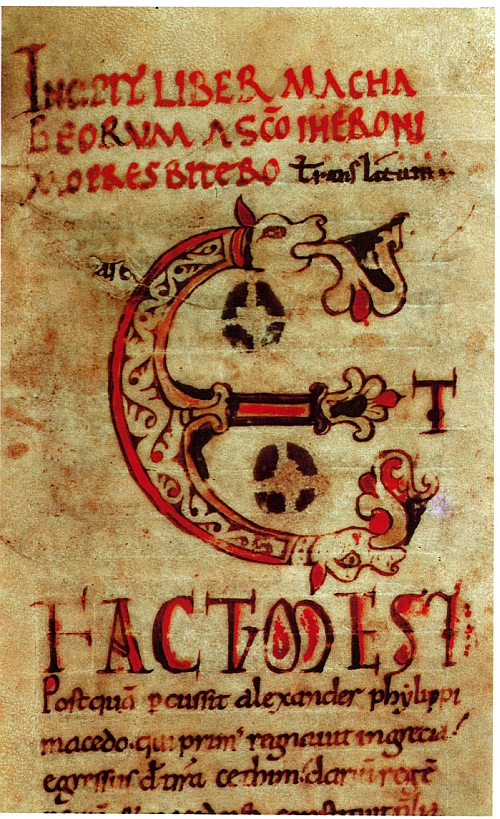 INCIPIT LIBER MACHA
BEORVM A SC̄O IHERONI
MO PRESBITERO Translatum
E T
FACTVM EST
Postquā p̱cussit alexander phylippi
macedo. qui prim᾽ regnauit in grecia!
egressus d̄ t̄ra cethim. dariū regē